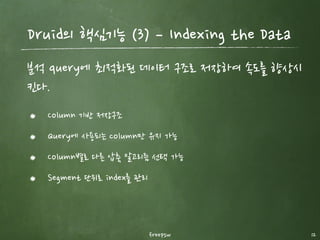 Druid의 핵심기능 (3) - Indexing the Data
분석 query에 최적화된 데이터 구조로 저장하여 속도를 향상시
킨다.
Column 기반 저장구조
Query에 사용되는 column만 유지 가능
Column별로 다른 압축 알고리즘 선택 가능
Segment 단위로 index를 관리
freepsw
12